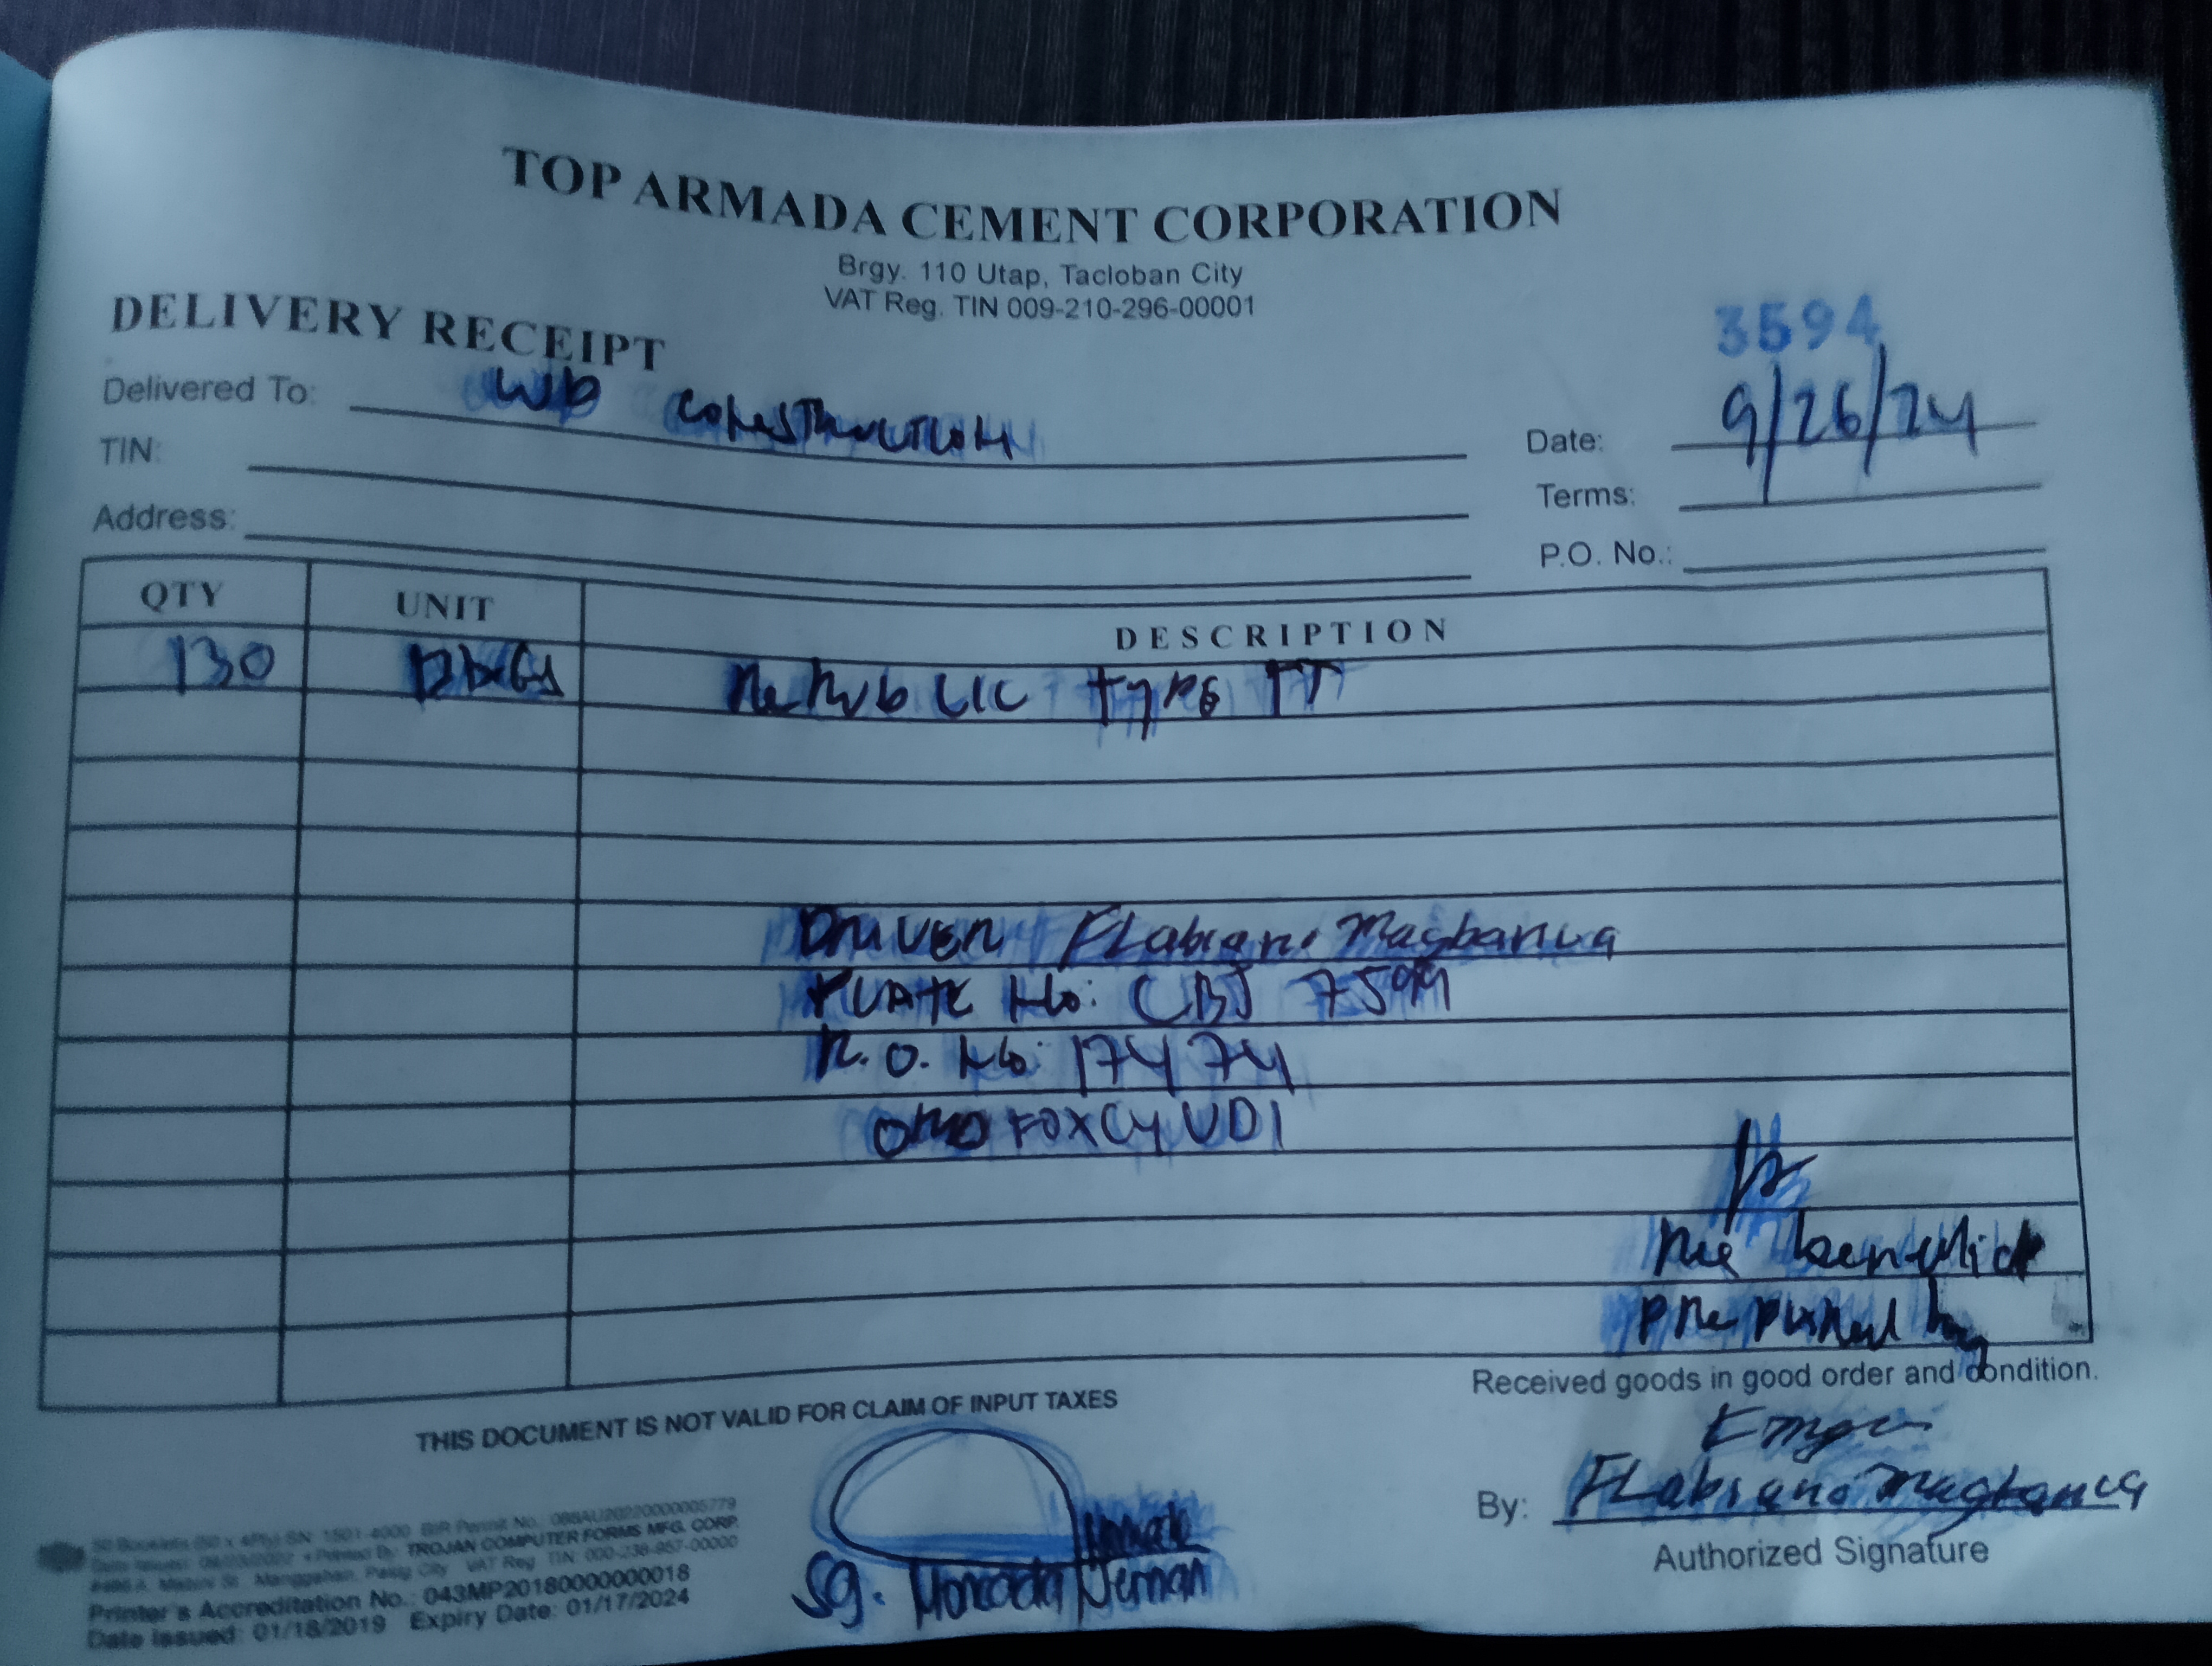 TOP ARMADA CEMENT CORPORATION
Brgy. 110 Utap, Tacloban City
VAT Reg. TIN 009-210-296-00001
DELIVERY RECEIPT
3594
Delivered To: WB CONSTRUCTION
Date: 9/26/24
TIN:
Terms:
Address:
P.O. No.:
QTY UNIT DESCRIPTION
130 BAGS REPUBLIC TYPE 1T
DRIVER FLabiano Magbanua
PLATE No: CBJ 7599
R.O. No: 17474
FOXCYUD1
prepared by
Received goods in good order and condition.
THIS DOCUMENT IS NOT VALID FOR CLAIM OF INPUT TAXES
By: FLabiano Magbanua
Authorized Signature
50 Booklets (50 x 4Ply) SN: 1501-4000 BIR Permit No. 088AU20220000005779
Printed By: TROJAN COMPUTER FORMS MFG. CORP.
Manggahan, Pasig City VAT Reg. TIN: 000-238-957-00000
Printer's Accreditation No.: 043MP20180000000018
Date Issued: 01/18/2019 Expiry Date: 01/17/2024
Sg.